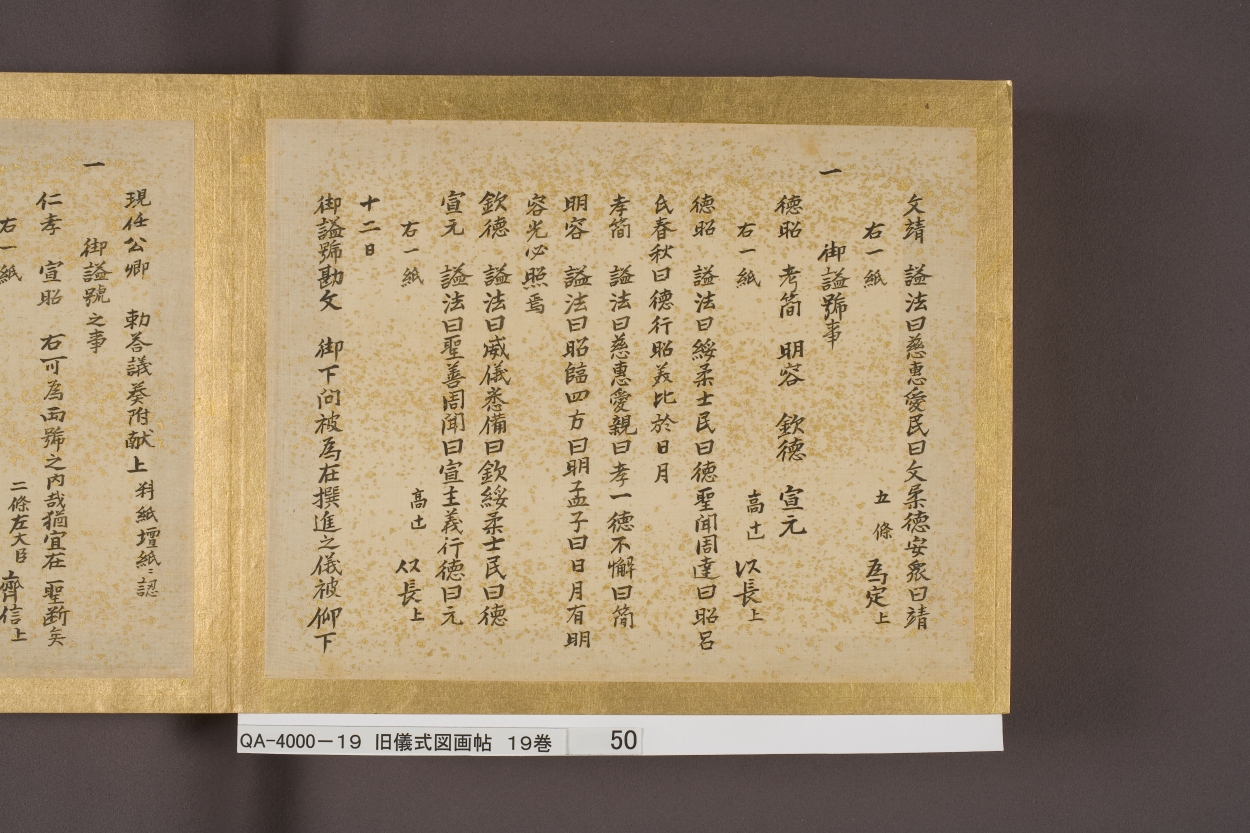 文靖　謚法曰慈惠愛民曰文柔德安衆曰靖
右一紙　五條　為定上
一　御謚號事
德昭　考簡　明容　欽德　宣元
右一紙　高辻　以長上
德昭　謚法曰綏柔士民曰德聖聞周達曰昭呂
氏春秋曰德行昭美比於日月
孝簡　謚法曰慈惠愛親曰孝一德不懈曰簡
明容　謚法曰昭臨四方曰明孟子曰日月有明
容光必照焉
欽德　謚法曰威儀悉備曰欽綏柔士民曰德
宣元　謚法曰聖善周聞曰宣主義行德曰元
右一紙　高辻　以長上
十二日
御謚號勘文　御下问被為在撰進之儀被仰下
現任公卿　勅答議奏附献上 料紙壇紙ニ認
一　御謚號之事
仁孝　宣昭　右可為両號之内哉猶宜在　聖断矣
右一紙　二條左大臣　齊信上
QA-4000-19　旧儀式図画帖　19巻　50